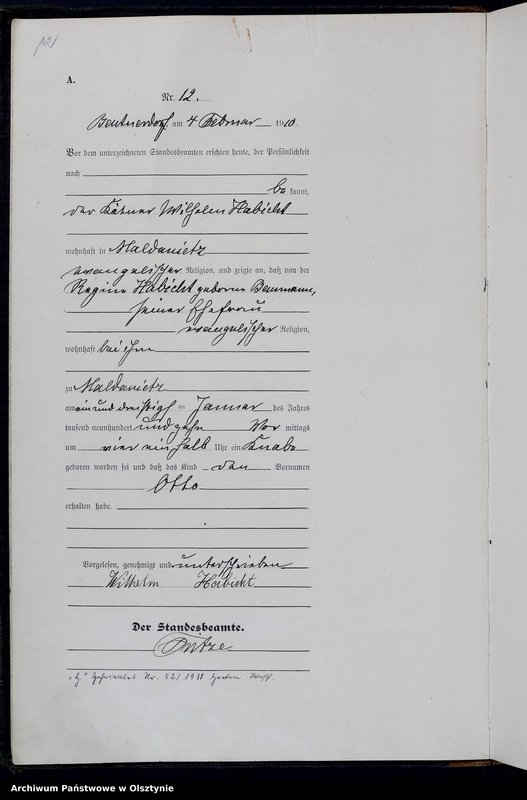 121
A.
Nr. 12.
Beutnerdorf am 4 Februar 1910.
Vor dem unterzeichneten Standesbeamten erschien heute, der Persönlichkeit
nach
be kannt,
der Kätner Wilhelm Habicht
wohnhaft in Maldanietz
evangelischer Religion, und zeigte an, daß von der
Regine Habicht geborene Baumann,
seiner Ehefrau
evangelischer Religion,
wohnhaft bei ihm
zu Maldanietz
am ein und dreißigsten Januar des Jahres
tausend neunhundert und zehn Vor mittags
um vier ein halb Uhr ein Knabe
geboren worden sei und daß das Kind den Vornamen
Otto
erhalten habe.
Vorgelesen, genehmigt und unterschrieben
Wilhelm Habicht
Der Standesbeamte.
Fritze
Geheiratet Nr. 52/1938
Archiwum Państwowe w Olsztynie